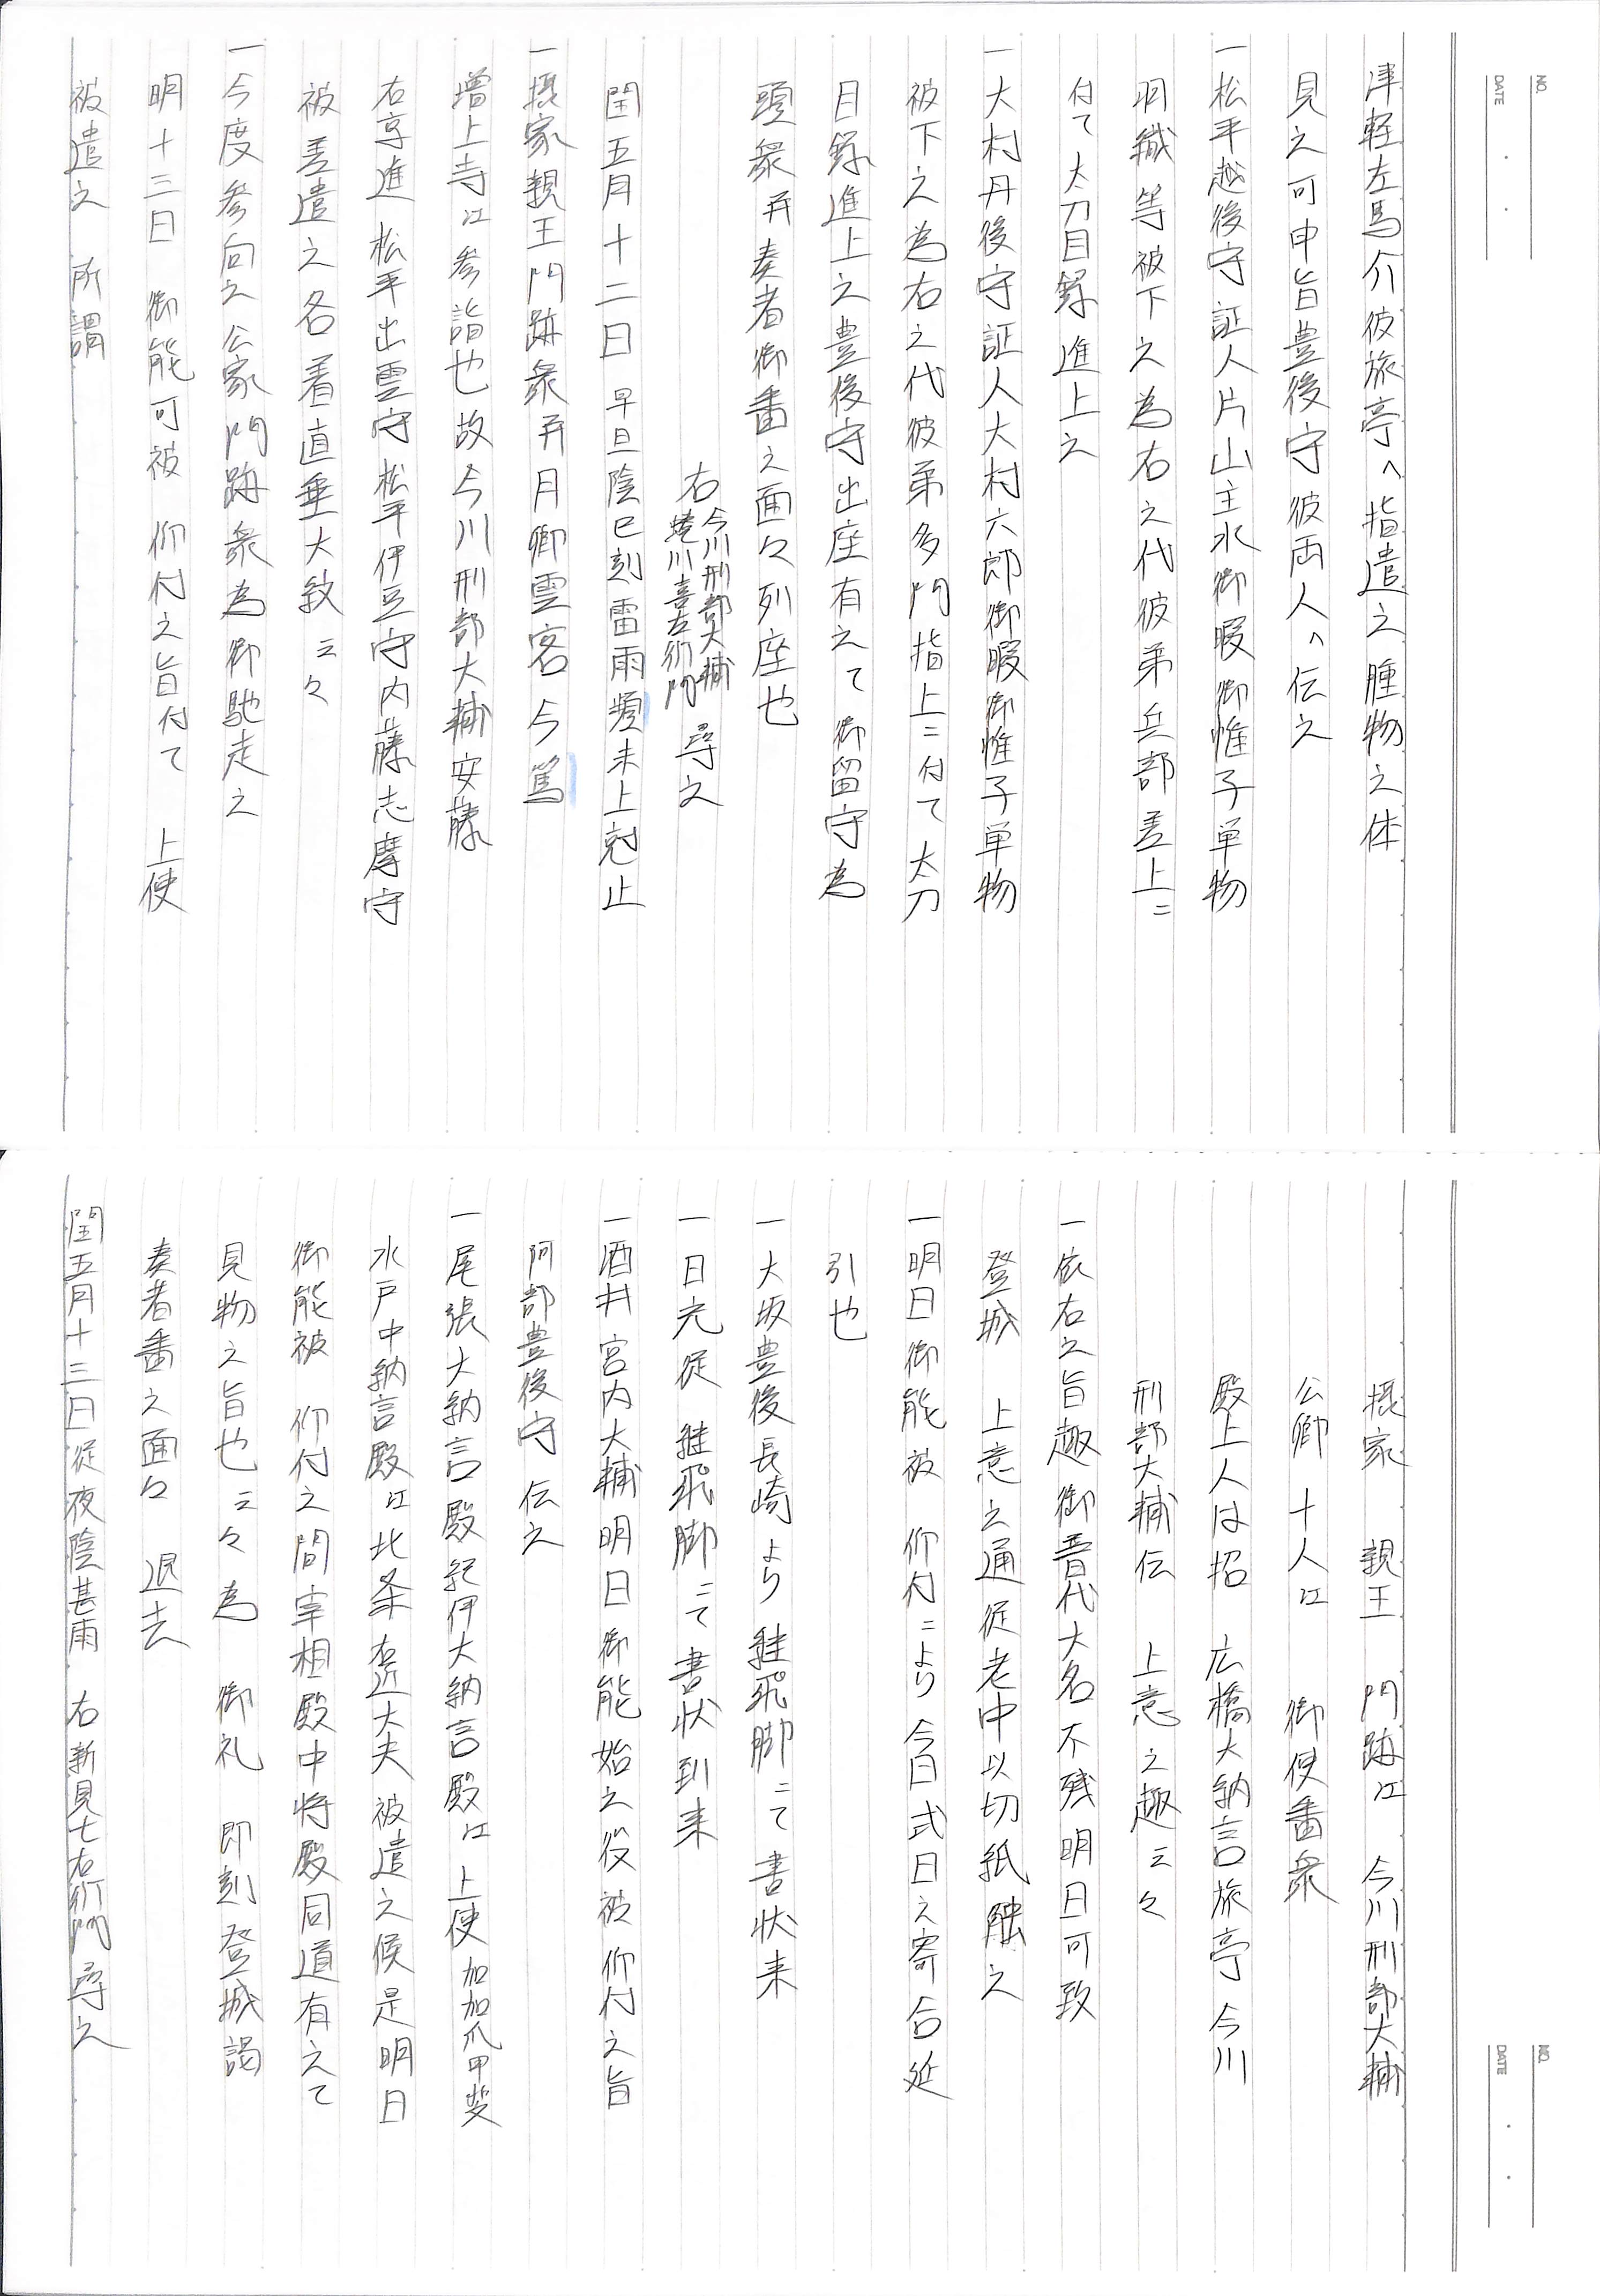 NO.
DATE
津軽左馬介彼旅亭へ指遣之腫物之体
見之可申旨豊後守彼両人へ伝之
一松平越後守証人片山主水御暇御帷子単物
羽織等被下之為右之代彼弟兵部差上ニ
付て太刀目録進上之
一大村丹後守証人大村六郎御暇御帷子単物
被下之為右之代彼弟多門指上ニ付て太刀
目録進上之豊後守出座有之て御留守為
頭衆并奏者御番之面々列座也
右今川刑部大輔蜷川喜左衛門尋之
閏五月十二日早旦陰巳刻雷雨頻未上刻止
一摂家親王門跡衆并月卿雲客今篤
増上寺江参詣也故今川刑部大輔安藤
右京進松平出雲守松平伊豆守内藤志摩守
被差遣之各着直垂大紋云々
一今度参向之公家門跡衆為御馳走之
明十三日御能可被仰付之旨付て上使
被遣之所謂
NO.
DATE
摂家 親王 門跡江 今川刑部大輔
公卿十人江 御使番衆
殿上人は招 広橋大納言旅亭今川
刑部大輔伝 上意之趣云々
一依右之旨趣御普代大名不残明日可致
登城 上意之通従老中以切紙触之
一明日御能被 仰付ニより今日式日之寄合延
引也
一大坂豊後長崎より継飛脚ニて書状来
一日光従継飛脚ニて書状到来
一酒井宮内大輔明日御能始之役被仰付之旨
阿部豊後守伝之
一尾張大納言殿紀伊大納言殿江上使加加爪甲斐
水戸中納言殿江北条右近大夫被遣之候是明日
御能被 仰付之間宰相殿中将殿同道有之て
見物之旨也云々為 御礼 即刻登城謁
奏者番之面々退去
閏五月十三日従夜陰甚雨 右新見七右衛門尋之